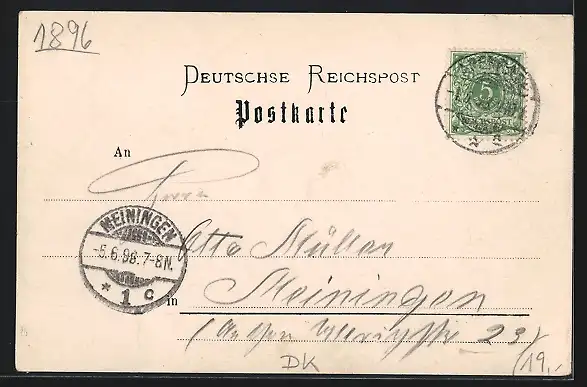 1896
DEUTSCHSE REICHSPOST
Postkarte
5
An
Herrn
MEININGEN
-5.6.98.7-8N.
* 1 c
Otto Müller
in Meiningen
23)
DK
19,-